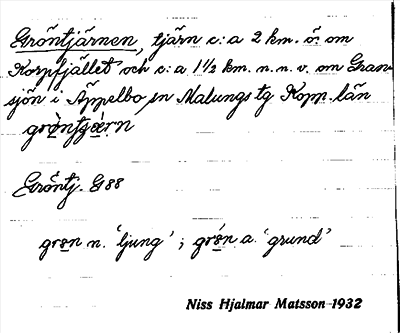 Gröntjärnen, tjärn c:a 2 km. ö. om
Korpfjället och c:a 1½ km. n. n. v. om Gran-
sjön i Äppelbo sn Malungs tg Kopp. län
grö̀ntjæ̀ṛn
Gröntj. G 88
grøn n. 'ljung' ; grø̀n a. 'grund'
Niss Hjalmar Matsson 1932